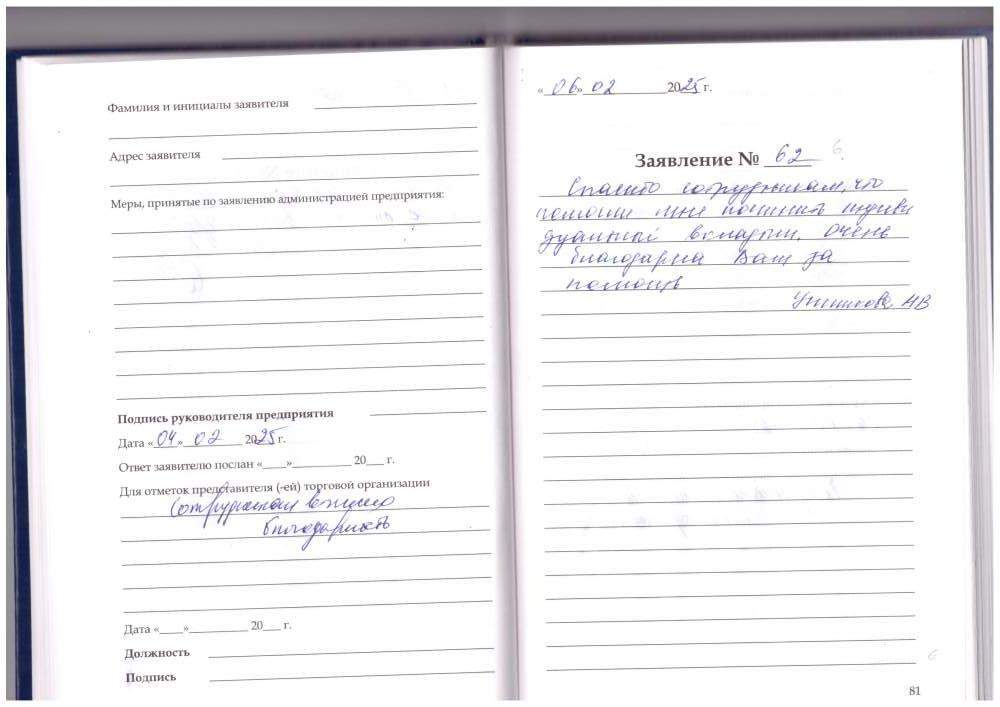 Фамилия и инициалы заявителя
Адрес заявителя
Меры, принятые по заявлению администрацией предприятия:
Подпись руководителя предприятия
Дата «04» 02 2025 г.
Ответ заявителю послан «___»__________ 20___ г.
Для отметок представителя (-ей) торговой организации
Сотрудникам
благодарность
Дата «____»__________ 20___ г.
Должность
Подпись
«06» 02 2025 г.
Заявление № 62
Спасибо сотрудникам, что
помогли мне починить индиви
дуальный вкладыш. Очень
благодарна Вам за
помощь
НВ
81